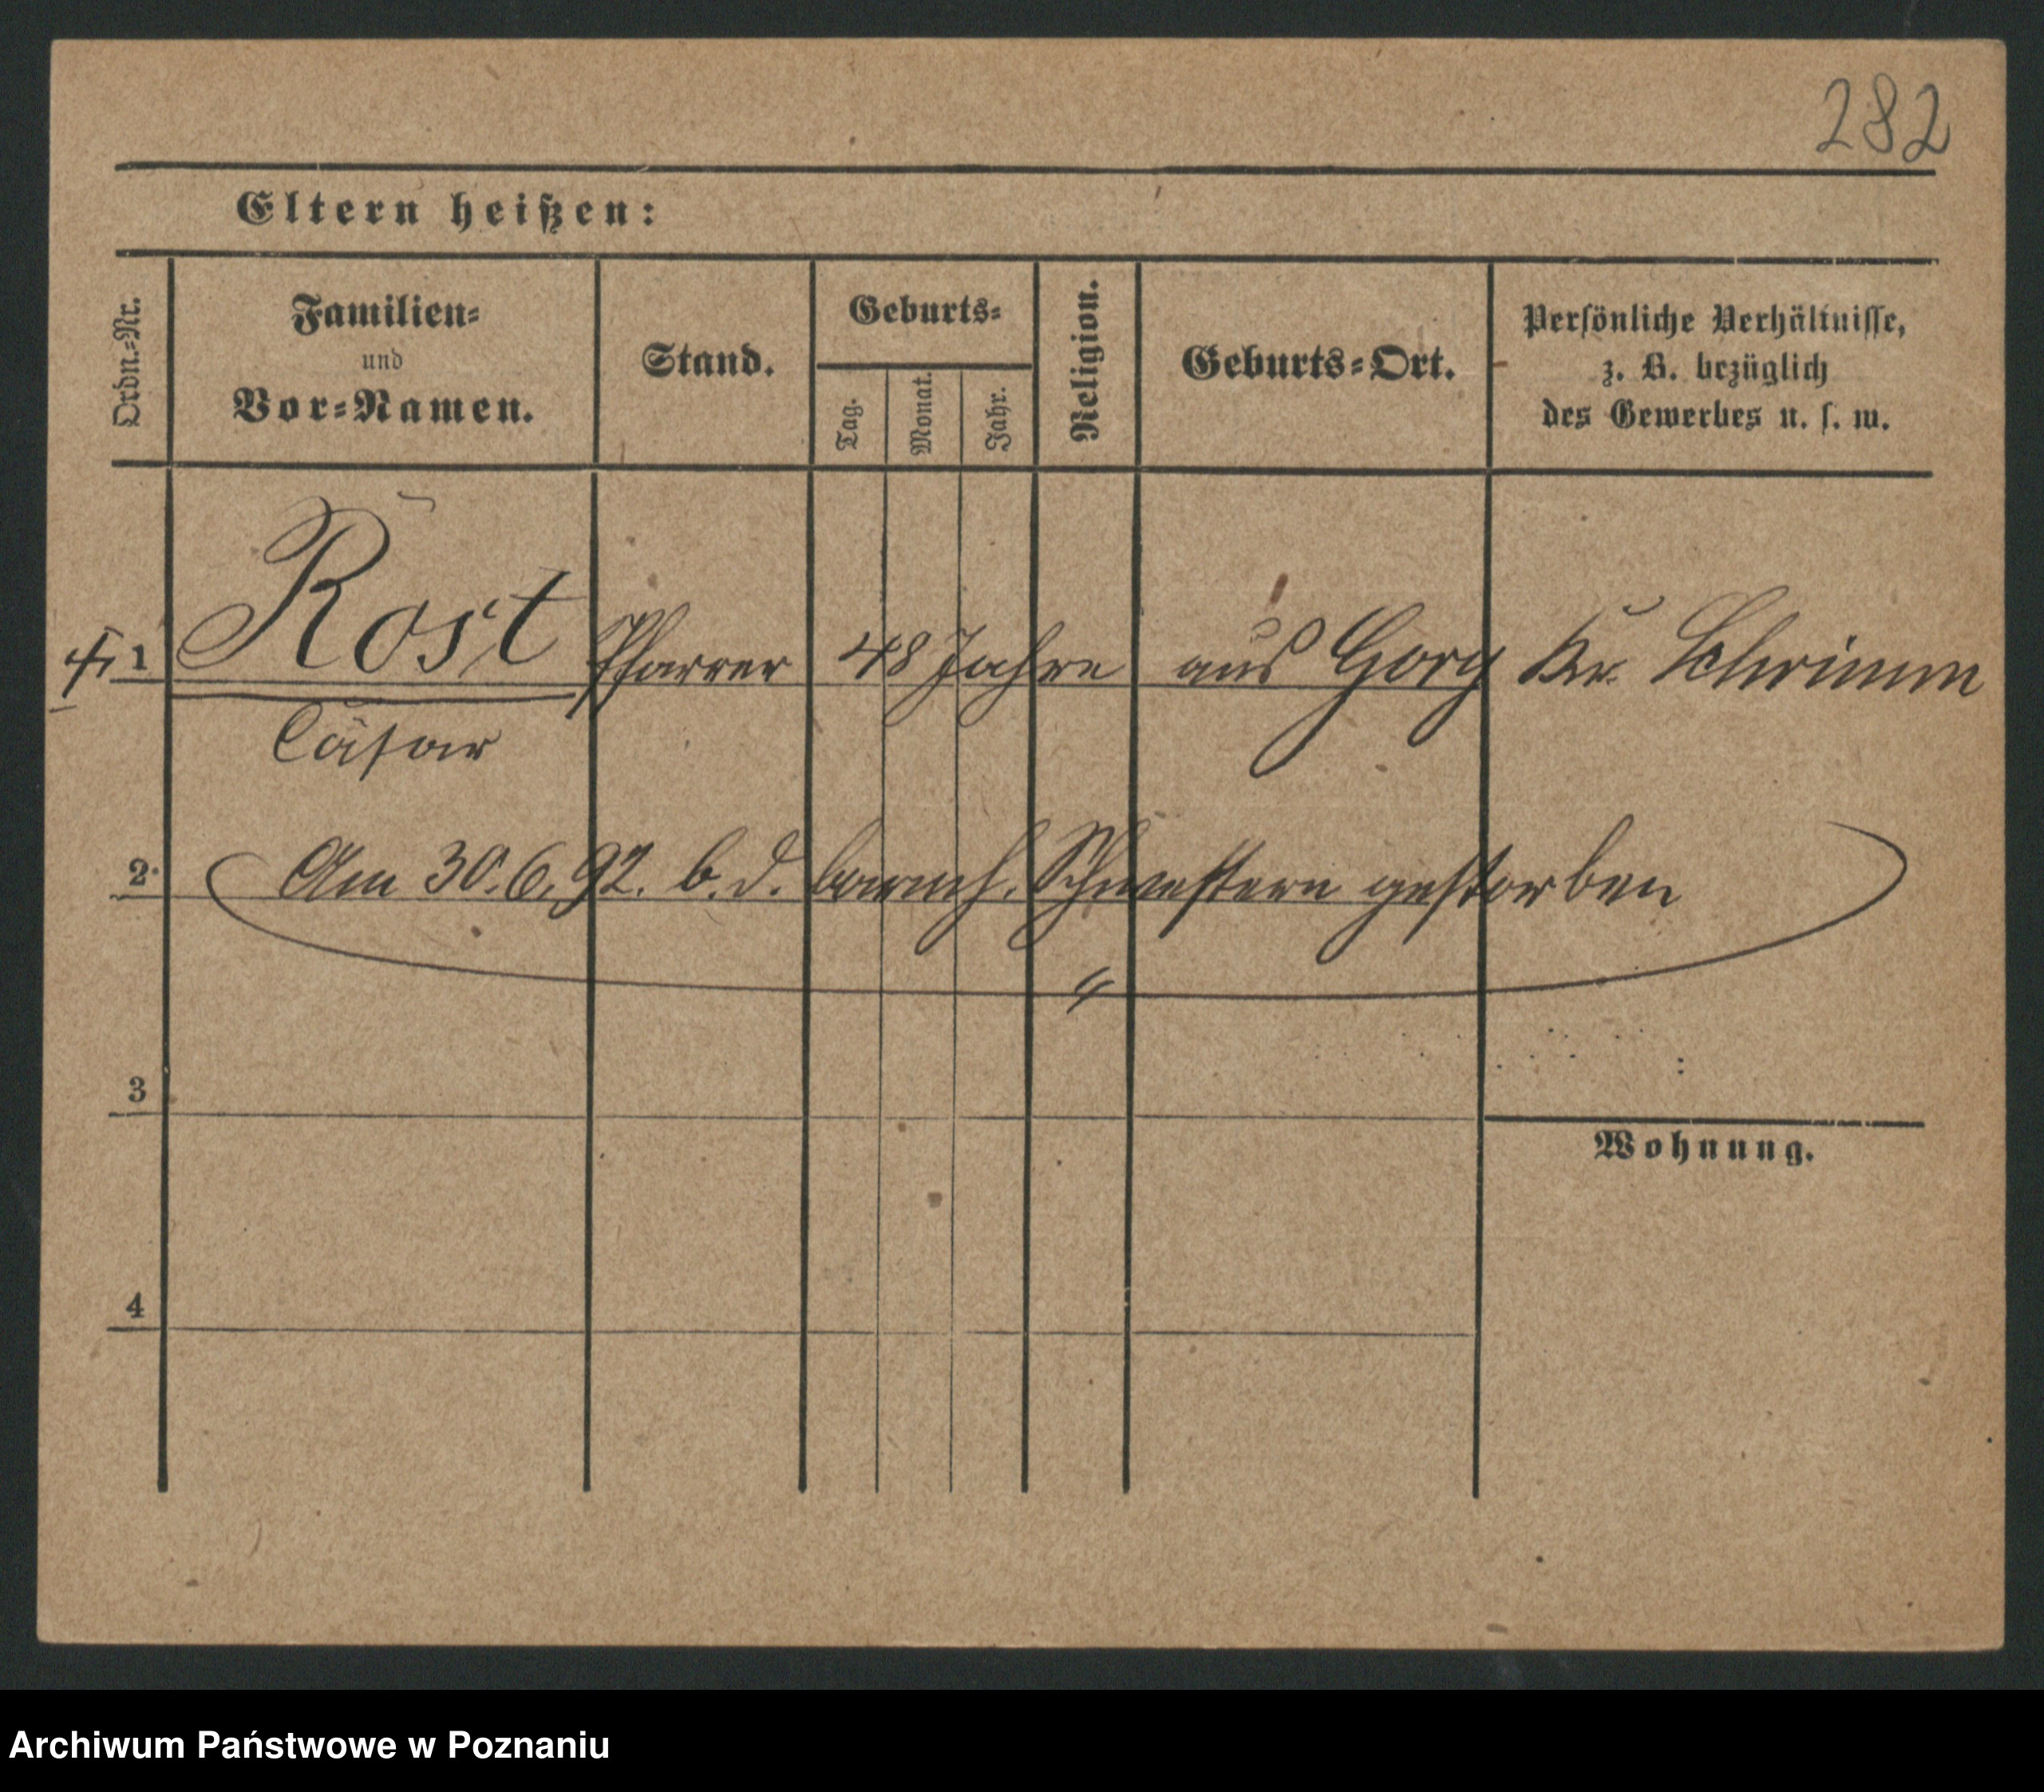 282
Eltern heißen:
Ordn.-Nr.
Familien-
und
Vor-Namen.
Stand.
Geburts-
Tag.
Monat.
Jahr.
Religion.
Geburts-Ort.
Persönliche Verhältnisse,
z. B. bezüglich
des Gewerbes u. s. w.
1 Rost Pfarrer 48 Jahre aus Gory Kr. Schrimm
Cäsar
2 Am 30.6.92. b. d. barmh. Schwestern gestorben
3
Wohnung.
4
Archiwum Państwowe w Poznaniu